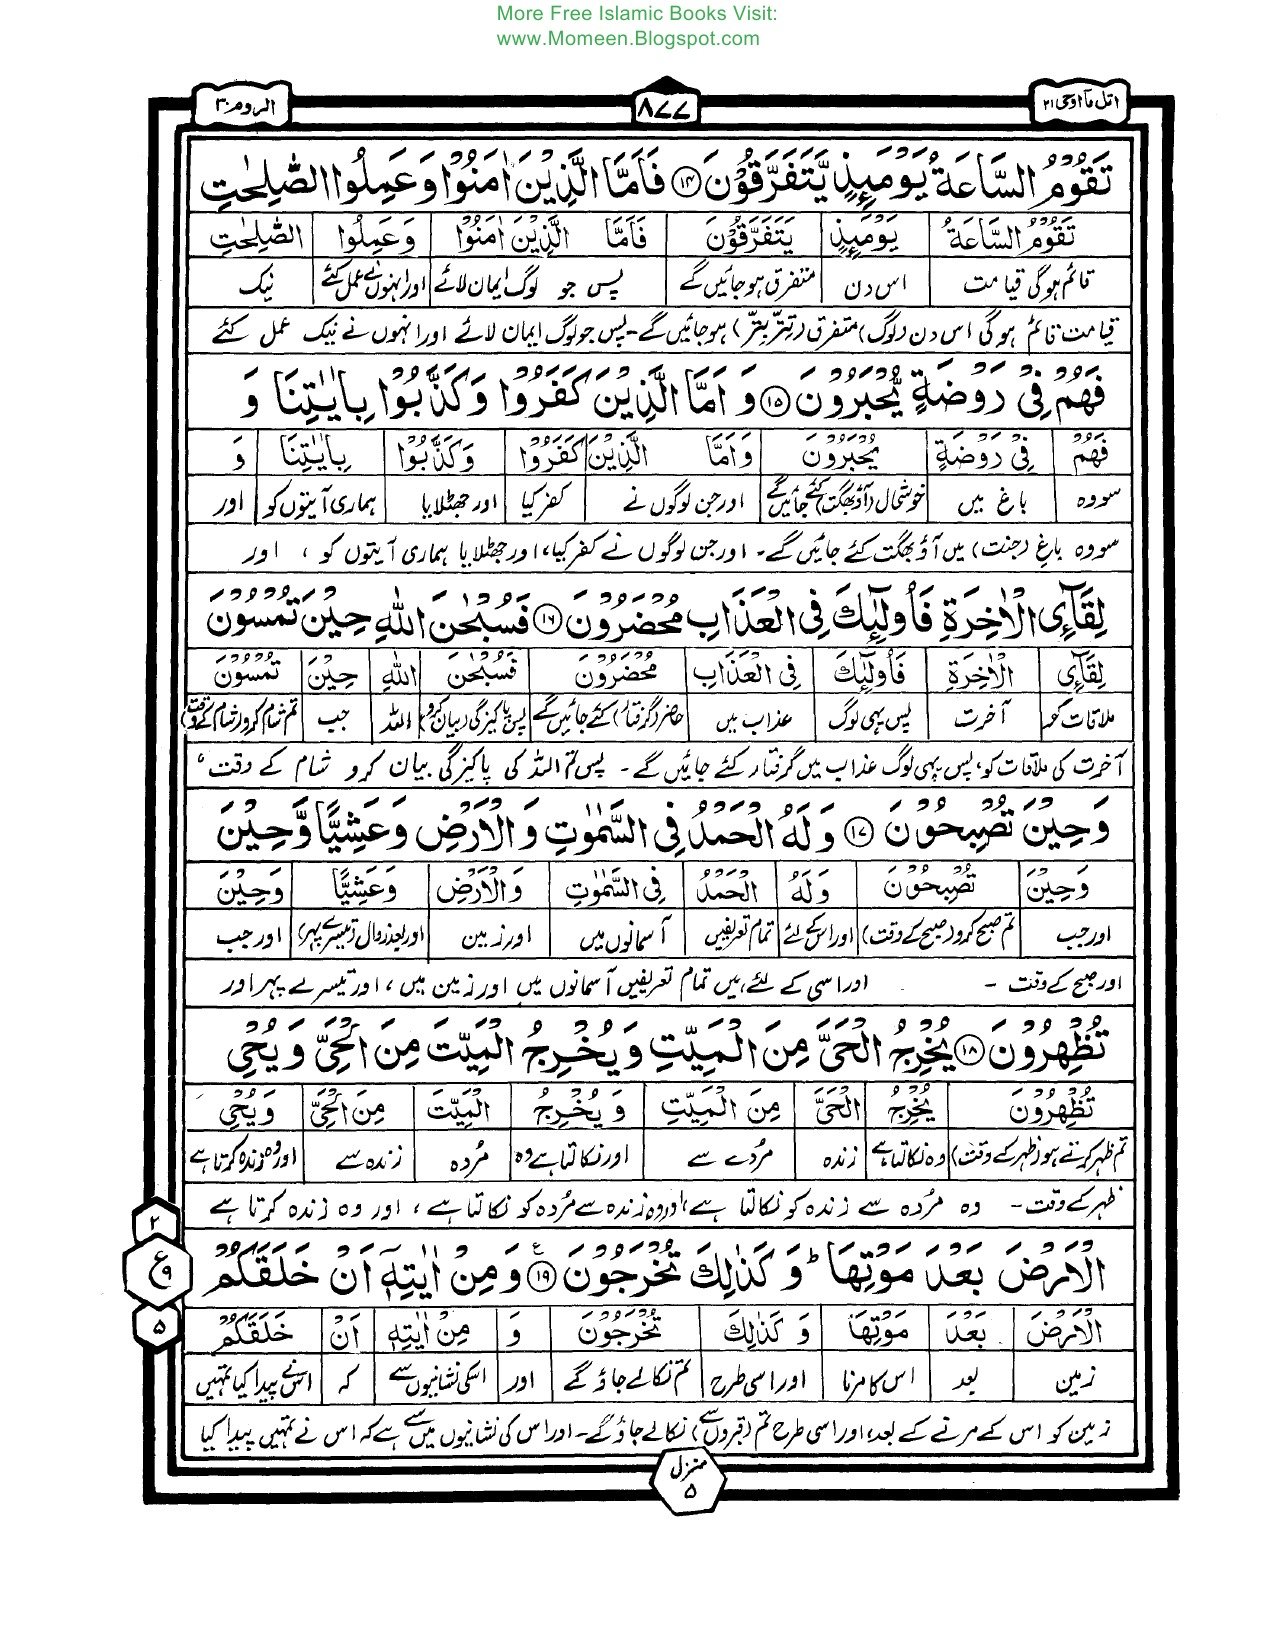 More Free Islamic Books Visit:
www.Momeen.Blogspot.com
اتل مآ اوحی ۲۱
۸۷۷
الروم ۳۰
تَقُوْمُ السَّاعَةُ يَوْمَىِٕذٍ يَّتَفَرَّقُوْنَ ۝۱۴ فَاَمَّا الَّذِيْنَ اٰمَنُوْا وَعَمِلُوا الصّٰلِحٰتِ
تَقُوْمُ السَّاعَةُ يَوْمَىِٕذٍ يَتَفَرَّقُوْنَ فَاَمَّا الَّذِيْنَ اٰمَنُوْا وَعَمِلُوا الصّٰلِحٰتِ
قائم ہوگی قیامت اس دن متفرق ہوجائیں گے پس جو لوگ ایمان لائے اور انہوں نے عمل کئے نیک
قیامت قائم ہوگی اس دن (لوگ) متفرق (تتر بتر) ہوجائیں گے۔ پس جو لوگ ایمان لائے اور انہوں نے نیک عمل کئے
فَهُمْ فِيْ رَوْضَةٍ يُّحْبَرُوْنَ ۝۱۵ وَ اَمَّا الَّذِيْنَ كَفَرُوْا وَكَذَّبُوْا بِاٰيٰتِنَا وَ
فَهُمْ فِيْ رَوْضَةٍ يُحْبَرُوْنَ وَاَمَّا الَّذِيْنَ كَفَرُوْا وَكَذَّبُوْا بِاٰيٰتِنَا وَ
سو وہ باغ میں خوشحال (آؤ بھگت) کئے جائیں گے اور جن لوگوں نے کفر کیا اور جھٹلایا ہماری آیتوں کو اور
سو وہ باغ (جنت) میں آؤ بھگت کئے جائیں گے۔ اور جن لوگوں نے کفر کیا، اور جھٹلایا ہماری آیتوں کو ، اور
لِقَآئِ الْاٰخِرَةِ فَاُولٰٓىِٕكَ فِي الْعَذَابِ مُحْضَرُوْنَ ۝۱۶ فَسُبْحٰنَ اللّٰهِ حِيْنَ تُمْسُوْنَ
لِقَآئِ الْاٰخِرَةِ فَاُولٰٓىِٕكَ فِي الْعَذَابِ مُحْضَرُوْنَ فَسُبْحٰنَ اللّٰهِ حِيْنَ تُمْسُوْنَ
ملاقات کو آخرت پس یہی لوگ عذاب میں حاضر (گرفتار) کئے جائیں گے پس پاکیزگی (بیان کرو) اللہ جب تم شام کرو (شام کے وقت)
آخرت کی ملاقات کو، پس یہی لوگ عذاب میں گرفتار کئے جائیں گے۔ پس تم اللہ کی پاکیزگی بیان کرو شام کے وقت ،
وَ حِيْنَ تُصْبِحُوْنَ ۝۱۷ وَ لَهُ الْحَمْدُ فِي السَّمٰوٰتِ وَ الْاَرْضِ وَ عَشِيًّا وَّ حِيْنَ
وَ حِيْنَ تُصْبِحُوْنَ وَ لَهُ الْحَمْدُ فِي السَّمٰوٰتِ وَ الْاَرْضِ وَعَشِيًّا وَحِيْنَ
اور جب تم صبح کرو (صبح کے وقت) اور اس کے لئے تمام تعریفیں آسمانوں میں اور زمین اور بعد زوال (تیسرے پہر) اور جب
اور صبح کے وقت ۔ اور اسی کے لئے ہیں تمام تعریفیں آسمانوں میں اور زمین میں ، اور تیسرے پہر اور
تُظْهِرُوْنَ ۝۱۸ يُخْرِجُ الْحَيَّ مِنَ الْمَيِّتِ وَ يُخْرِجُ الْمَيِّتَ مِنَ الْحَيِّ وَ يُحْيِ
تُظْهِرُوْنَ يُخْرِجُ الْحَيَّ مِنَ الْمَيِّتِ وَ يُخْرِجُ الْمَيِّتَ مِنَ الْحَيِّ وَ يُحْيِ
تم ظہر کرتے ہو (ظہر کے وقت) وہ نکالتا ہے زندہ مُردے سے اور نکالتا ہے وہ مُردہ زندہ سے اور وہ زندہ کرتا ہے
ظہر کے وقت ۔ وہ مُردہ سے زندہ کو نکالتا ہے، اور وہ زندہ سے مُردہ کو نکالتا ہے ، اور وہ زندہ کرتا ہے
الْاَرْضَ بَعْدَ مَوْتِهَا ؕ وَ كَذٰلِكَ تُخْرَجُوْنَ ۝۱۹ وَ مِنْ اٰيٰتِهٖۤ اَنْ خَلَقَكُمْ
الْاَرْضَ بَعْدَ مَوْتِهَا وَ كَذٰلِكَ تُخْرَجُوْنَ وَ مِنْ اٰيٰتِهٖ اَنْ خَلَقَكُمْ
زمین بعد اس کا مرنا اور اسی طرح تم نکالے جاؤ گے اور اسکی نشانیوں سے کہ اس نے پیدا کیا تمہیں
زمین کو اس کے مرنے کے بعد، اور اسی طرح تم (قبروں سے) نکالے جاؤ گے۔ اور اس کی نشانیوں میں سے ہے کہ اس نے تمہیں پیدا کیا
۲
ع
۹
۵
منزل
۵